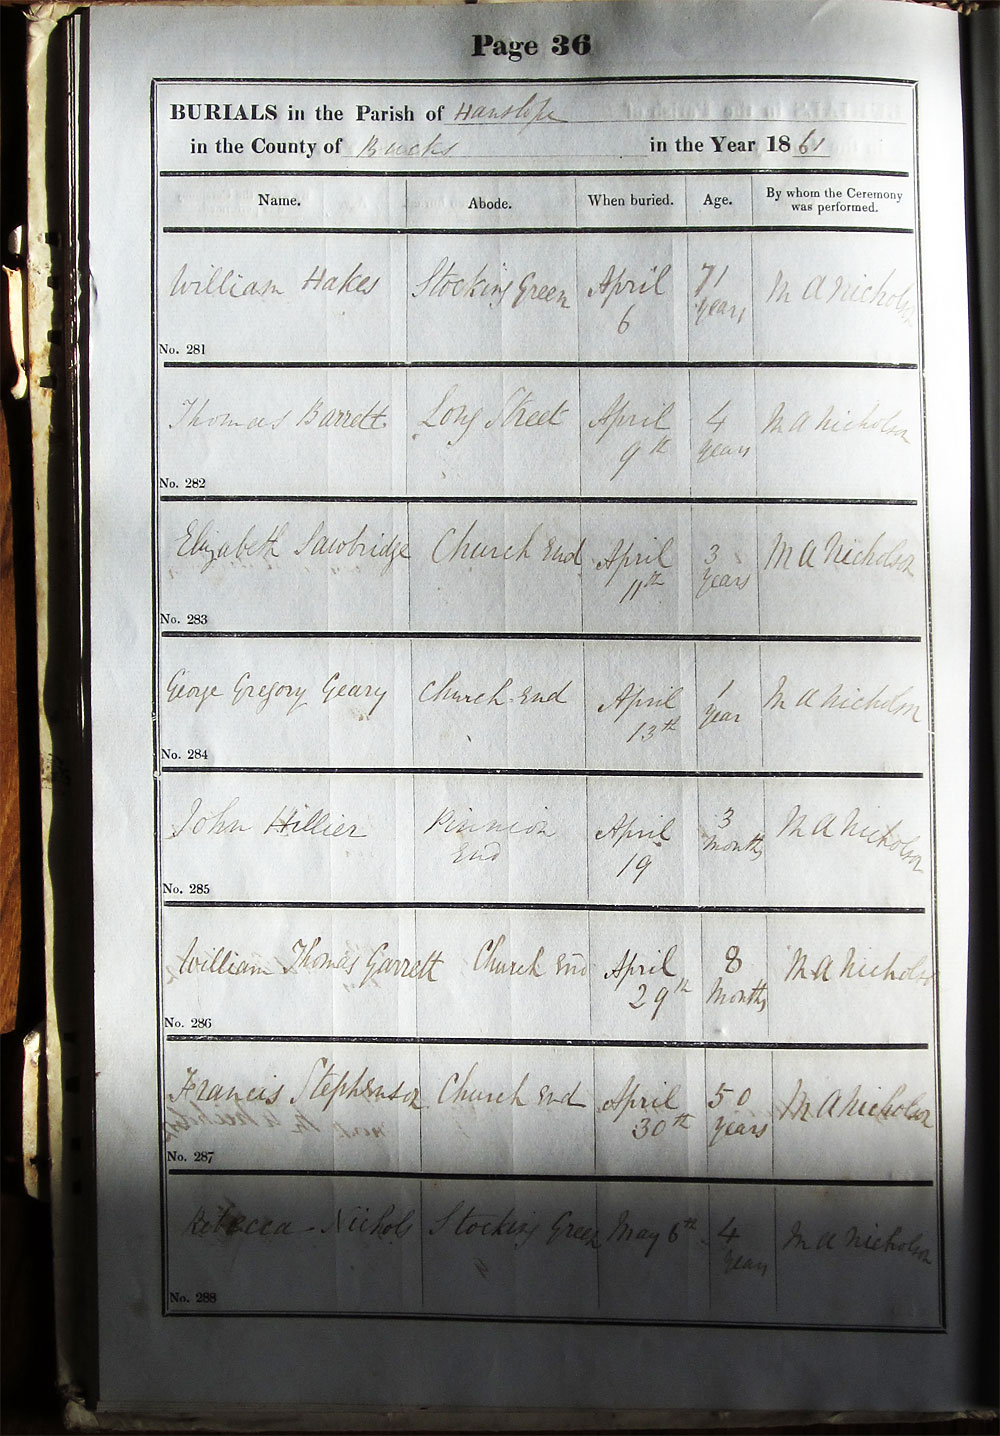 Page 36
BURIALS in the Parish of Hanslope
in the County of Bucks in the Year 1861
Name. Abode. When buried. Age. By whom the Ceremony was performed.
William Hakes Stocking Green April 6 71 years M A Nicholson
No. 281
Thomas Barrett Long Street April 9th 4 years M A Nicholson
No. 282
Elizabeth Sawbridge Church End April 11th 3 years M A Nicholson
No. 283
George Gregory Geary Church End April 13th 1 year M A Nicholson
No. 284
John Hillier Pinnion End April 19 3 Months M A Nicholson
No. 285
William Thomas Garrett Church End April 29th 8 Months M A Nicholson
No. 286
Francis Stephenson Church End April 30th 50 years M A Nicholson
No. 287
Rebecca Nichols Stocking Green May 6th 4 years M A Nicholson
No. 288